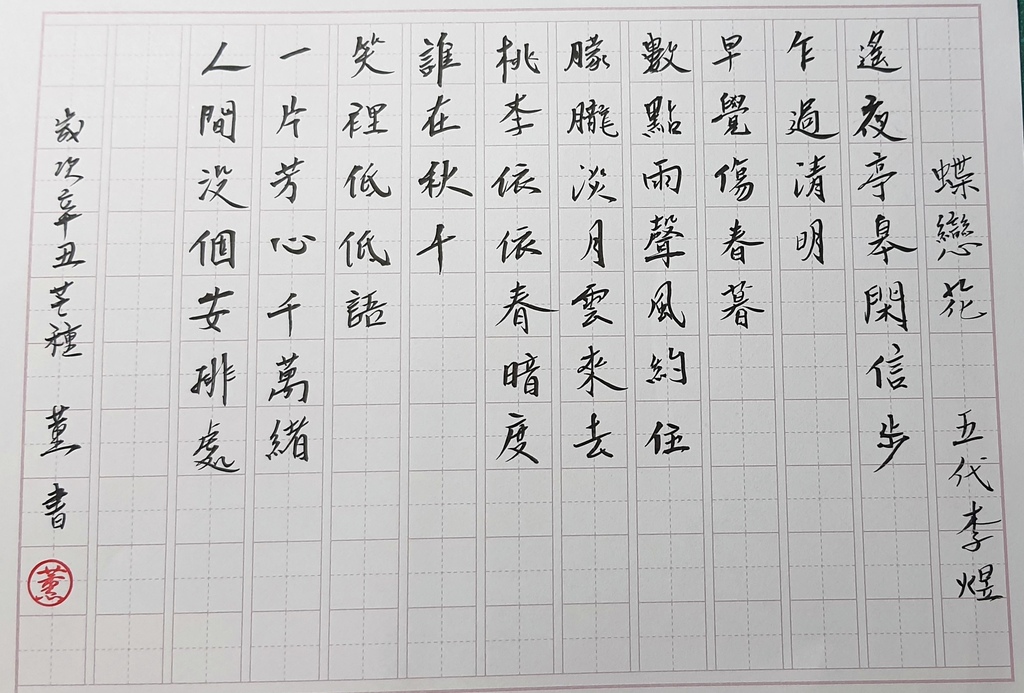 蝶戀花 五代李煜
遙夜亭皋閑信步
乍過清明
早覺傷春暮
數點雨聲風約住
朦朧淡月雲來去
桃李依依春暗度
誰在秋千
笑裡低低語
一片芳心千萬緒
人間沒個安排處
歲次辛丑芒種 薰書
薰